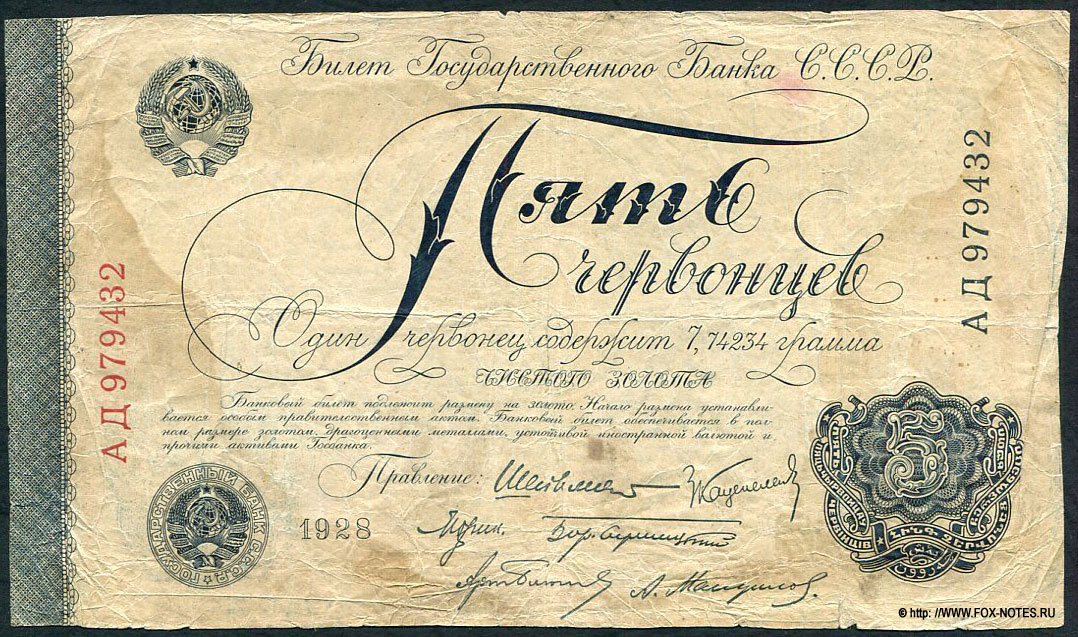 Билет Государственного Банка С.С.С.Р.
Пять
червонцев
Один червонец содержит 7,74234 грамма
чистого золота
Банковый билет подлежит размену на золото. Начало размена устанавли-
вается особым правительственным актом. Банковый билет обеспечивается в пол-
ном размере золотом, драгоценными металлами, устойчивой иностранной валютой и
прочими активами Госбанка.
Правление:
1928
ГОСУДАРСТВЕННЫЙ БАНК С.С.С.Р.
АД 979432
АД 979432
5
© http: //WWW.FOX-NOTES.RU